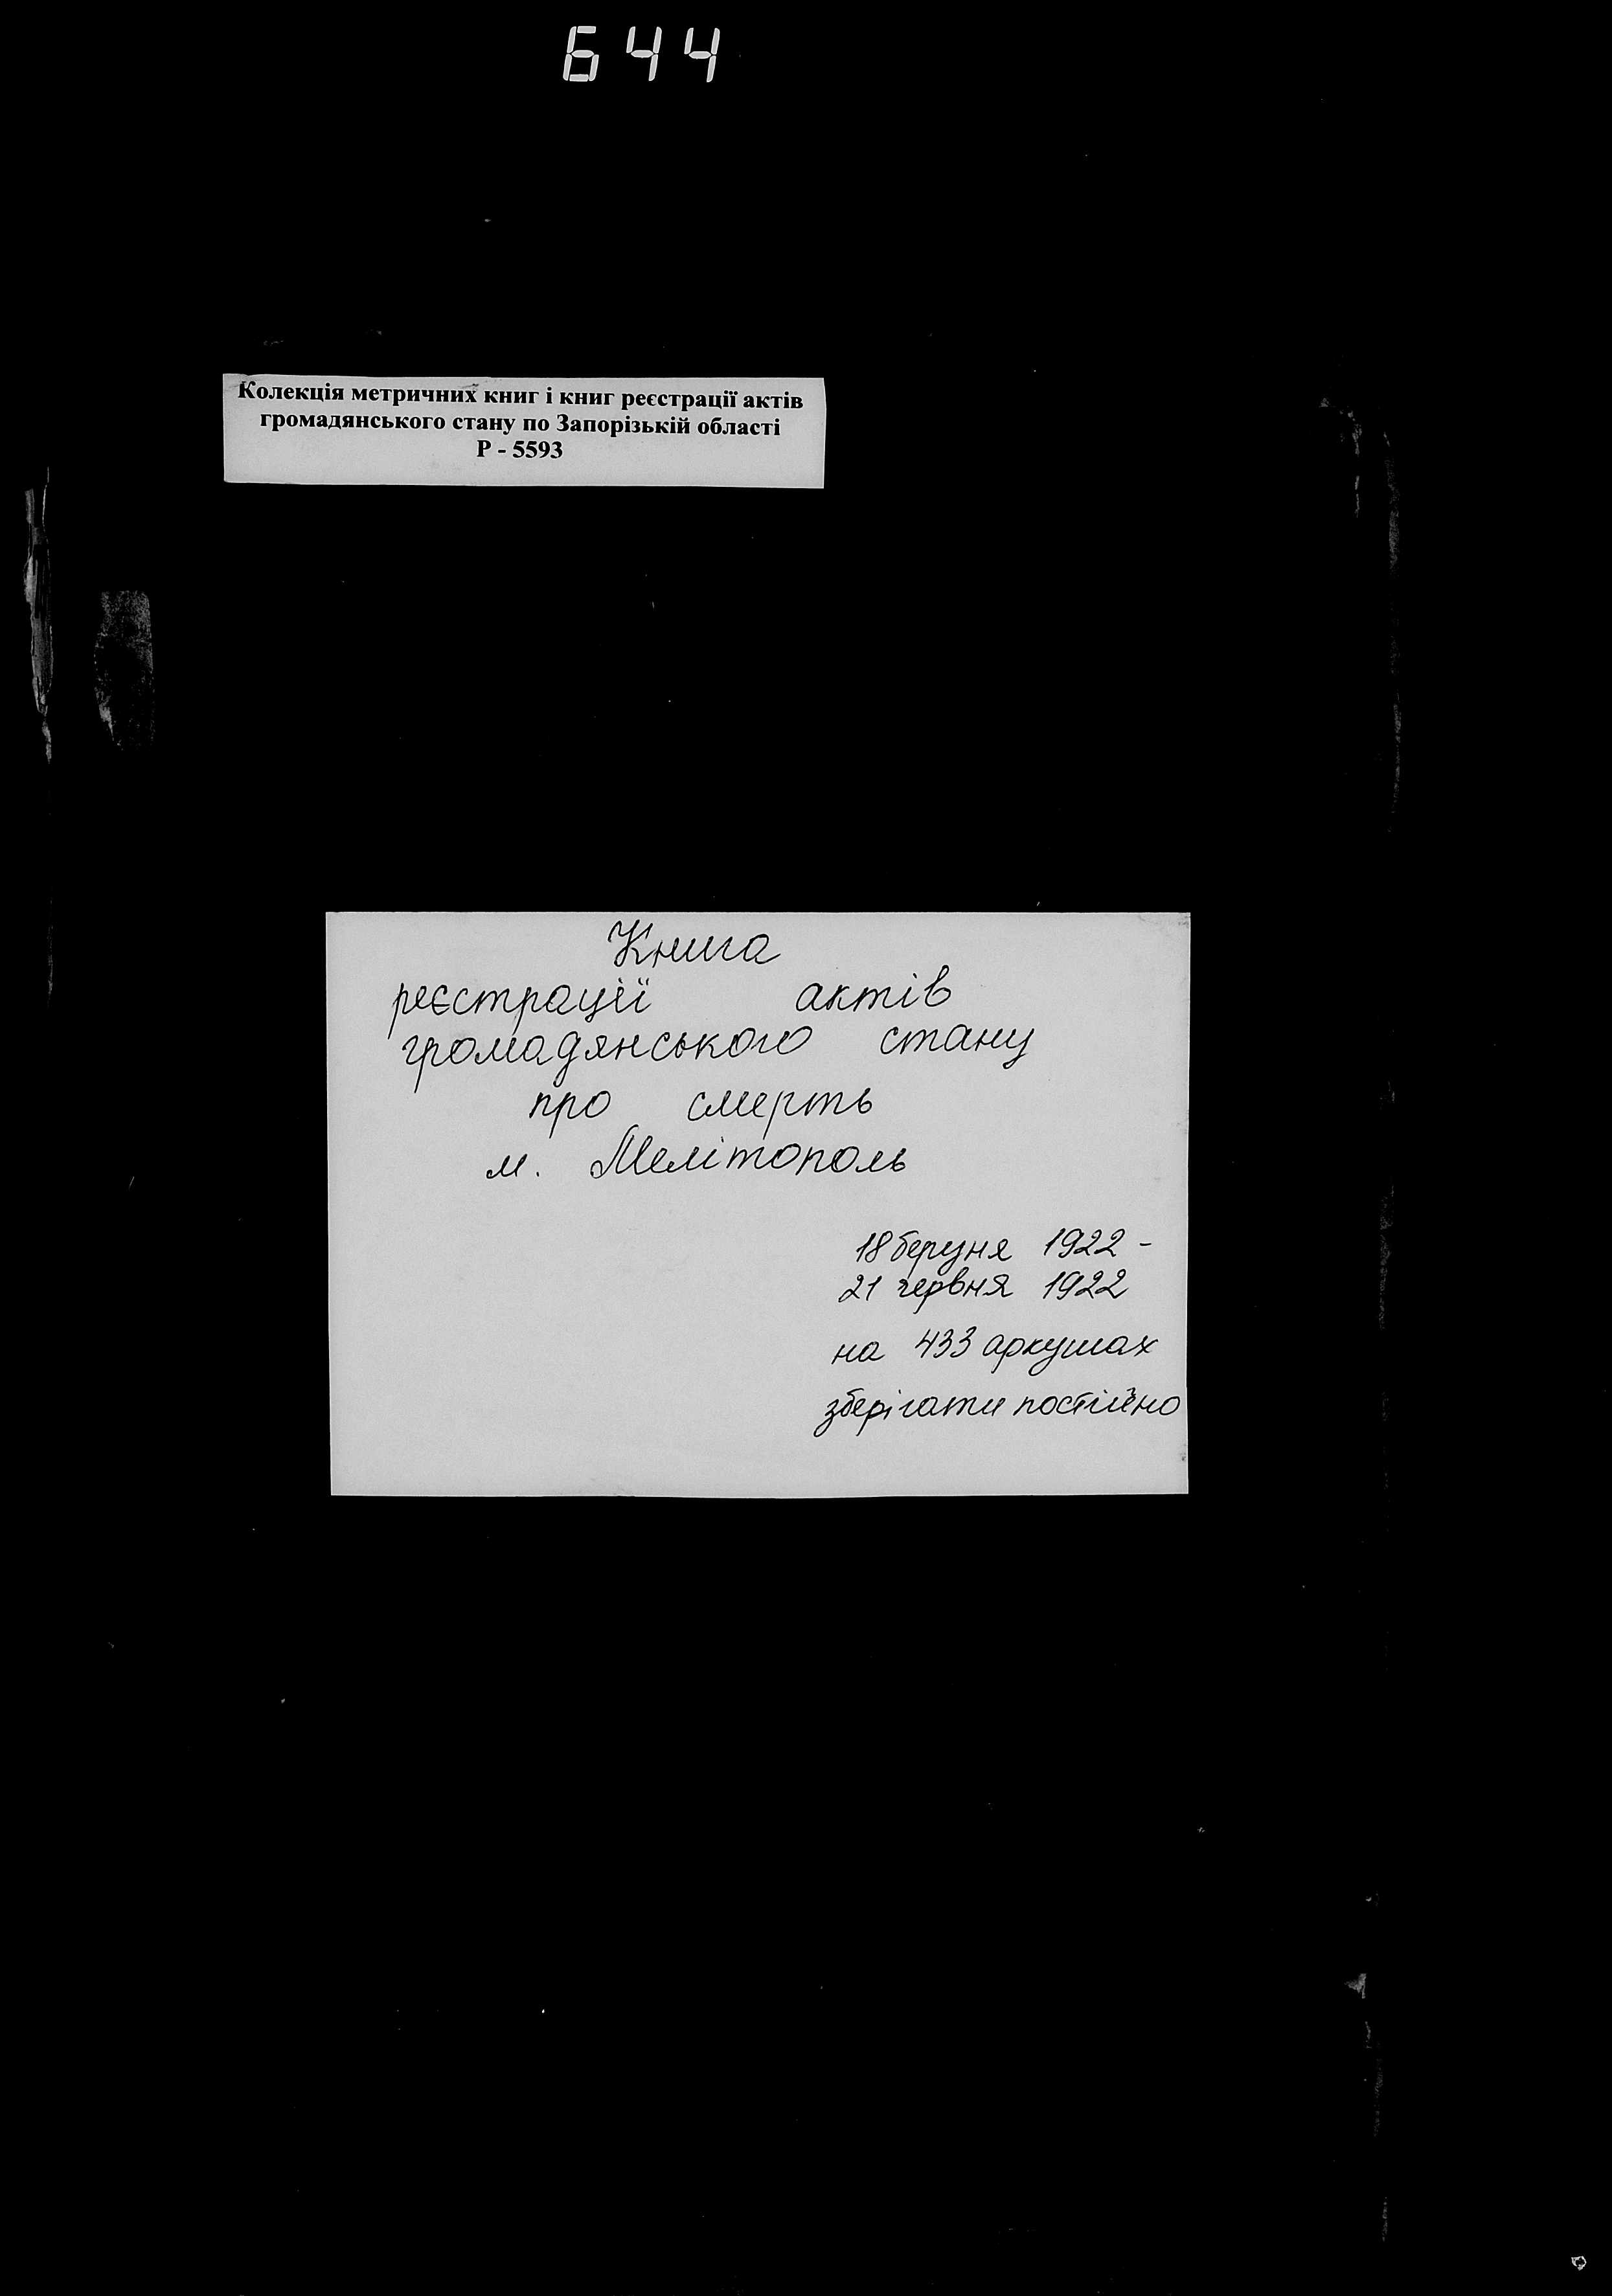 644
Колекція метричних книг і книг реєстрації актів
громадянського стану по Запорізькій області
Р - 5593
Книга
реєстрації актів
громадянського стану
про смерть
м. Мелітополь
18 березня 1922 -
21 червня 1922
на 433 аркушах
зберігати постійно